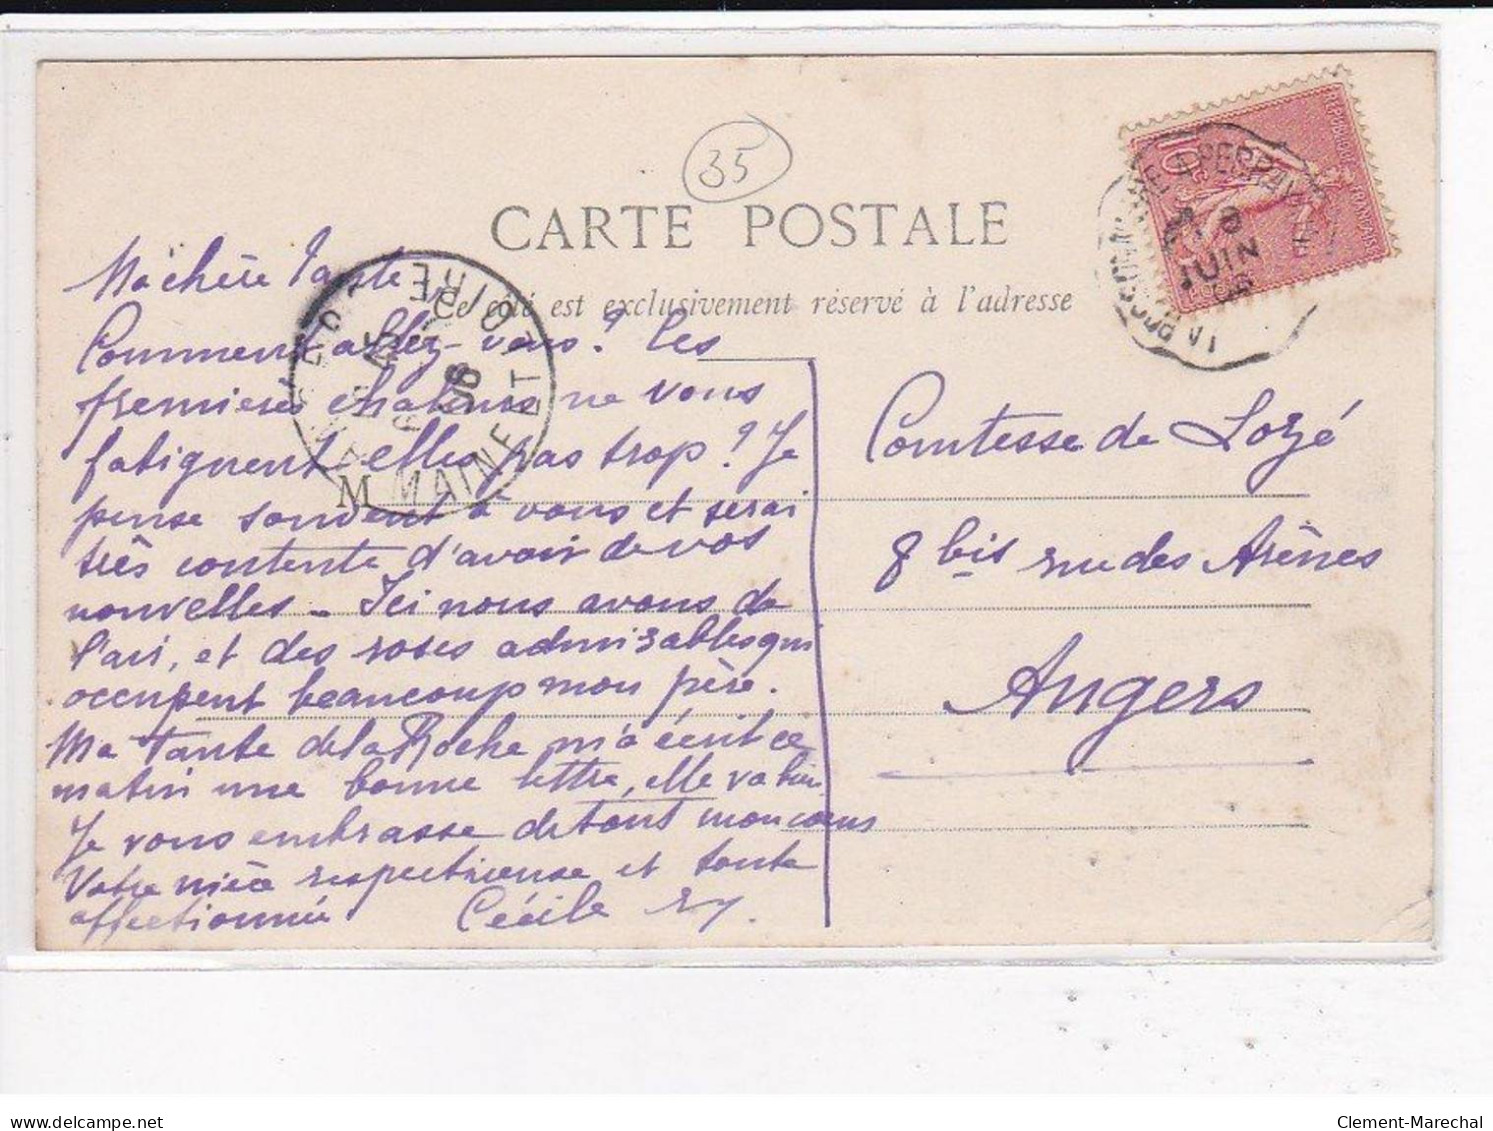 35
CARTE POSTALE
Ce côté est exclusivement réservé à l'adresse
M
10c
REPUBLIQUE FRANÇAISE
JUIN
MAINE ET LOIRE
06
Ma chère Tante
Comment allez-vous? Les
premières chaleurs ne vous
fatiguent-elles pas trop? Je
pense souvent à vous et serai
très contente d'avoir de vos
nouvelles - Ici nous avons de
l'air, et des roses admirables qui
occupent beaucoup mon père.
Ma tante de la Roche m'a écrit ce
matin une bonne lettre, elle va bien
Je vous embrasse de tout mon cœur
Votre nièce respectueuse et toute
affectionnée Cécile
Comtesse de Lozé
8 bis rue des Arènes
Angers
delcampe.net
Clement-Marechal